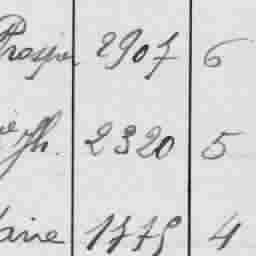 Prosper 2907 6
Jh. 2320 5
aire 1775 4